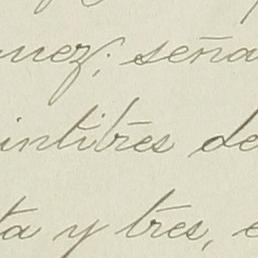 nez; seña
intitrés de
ta y tres, e